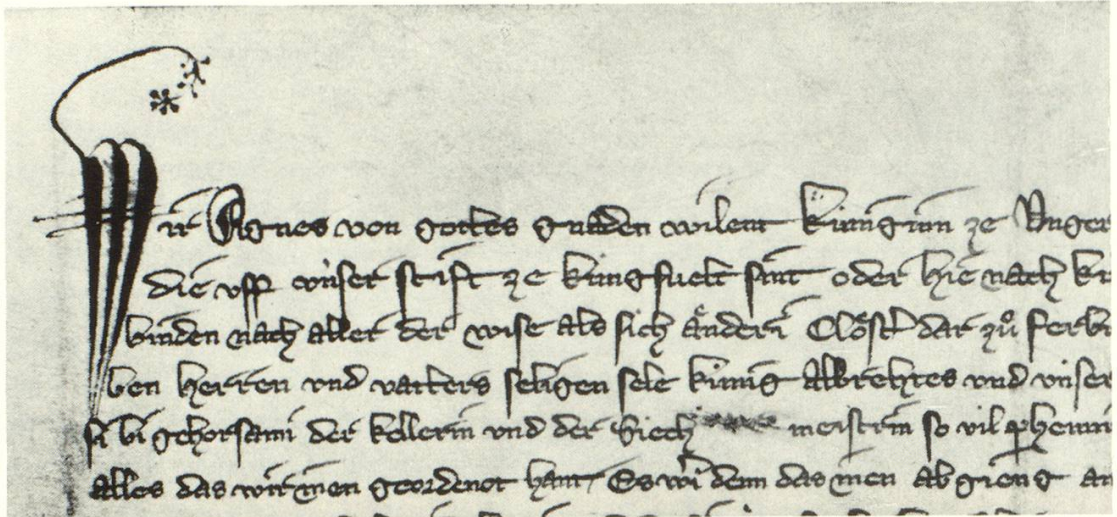 Wir Agnes von gottes gnaden wilent küngin ze Unger
die uff unser stift ze küngsuelt sint oder hie nach ku
binden nach aller der wise als sich ander Clöster dar zů ferbi
ben herren und vatters seligen sele künig Albrehtes und unser
si bi gehorsami der kellerin und der Siech meistrin so vil phenni
alles das wir inen geordenot hant Es wer denn das inen ab gieng an